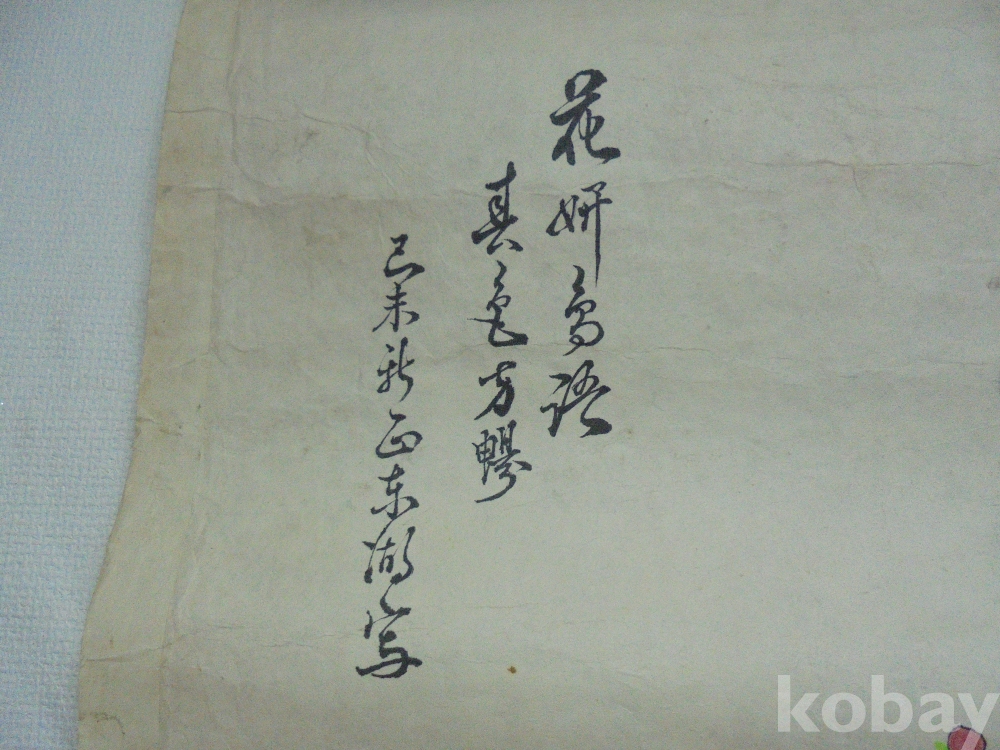 花妍鳥語
真色方暢
己未新正东湖写
kobay